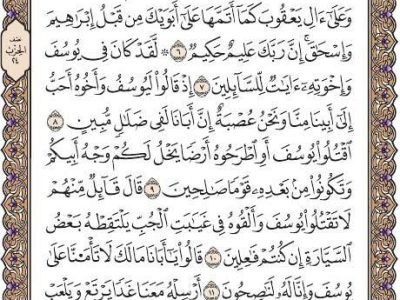 وَعَلَىٰٓ ءَالِ يَعْقُوبَ كَمَآ أَتَمَّهَا عَلَىٰٓ أَبَوَيْكَ مِن قَبْلُ إِبْرَٰهِيمَ
وَإِسْحَٰقَۚ إِنَّ رَبَّكَ عَلِيمٌ حَكِيمٌ ٦ ۞ لَّقَدْ كَانَ فِى يُوسُفَ
وَإِخْوَتِهِۦٓ ءَايَٰتٌ لِّلسَّآئِلِينَ ٧ إِذْ قَالُوا۟ لَيُوسُفُ وَأَخُوهُ أَحَبُّ
إِلَىٰٓ أَبِينَا مِنَّا وَنَحْنُ عُصْبَةٌ إِنَّ أَبَانَا لَفِى ضَلَٰلٍ مُّبِينٍ ٨
ٱقْتُلُوا۟ يُوسُفَ أَوِ ٱطْرَحُوهُ أَرْضًا يَخْلُ لَكُمْ وَجْهُ أَبِيكُمْ
وَتَكُونُوا۟ مِنۢ بَعْدِهِۦ قَوْمًا صَٰلِحِينَ ٩ قَالَ قَآئِلٌ مِّنْهُمْ
لَا تَقْتُلُوا۟ يُوسُفَ وَأَلْقُوهُ فِى غَيَٰبَتِ ٱلْجُبِّ يَلْتَقِطْهُ بَعْضُ
ٱلسَّيَّارَةِ إِن كُنتُمْ فَٰعِلِينَ ١٠ قَالُوا۟ يَٰٓأَبَانَا مَا لَكَ لَا تَأْمَ۫نَّا عَلَىٰ
يُوسُفَ وَإِنَّا لَهُۥ لَنَٰصِحُونَ ١١ أَرْسِلْهُ مَعَنَا غَدًا يَرْتَعْ وَيَلْعَبْ
نصف
الحزب
٢٤